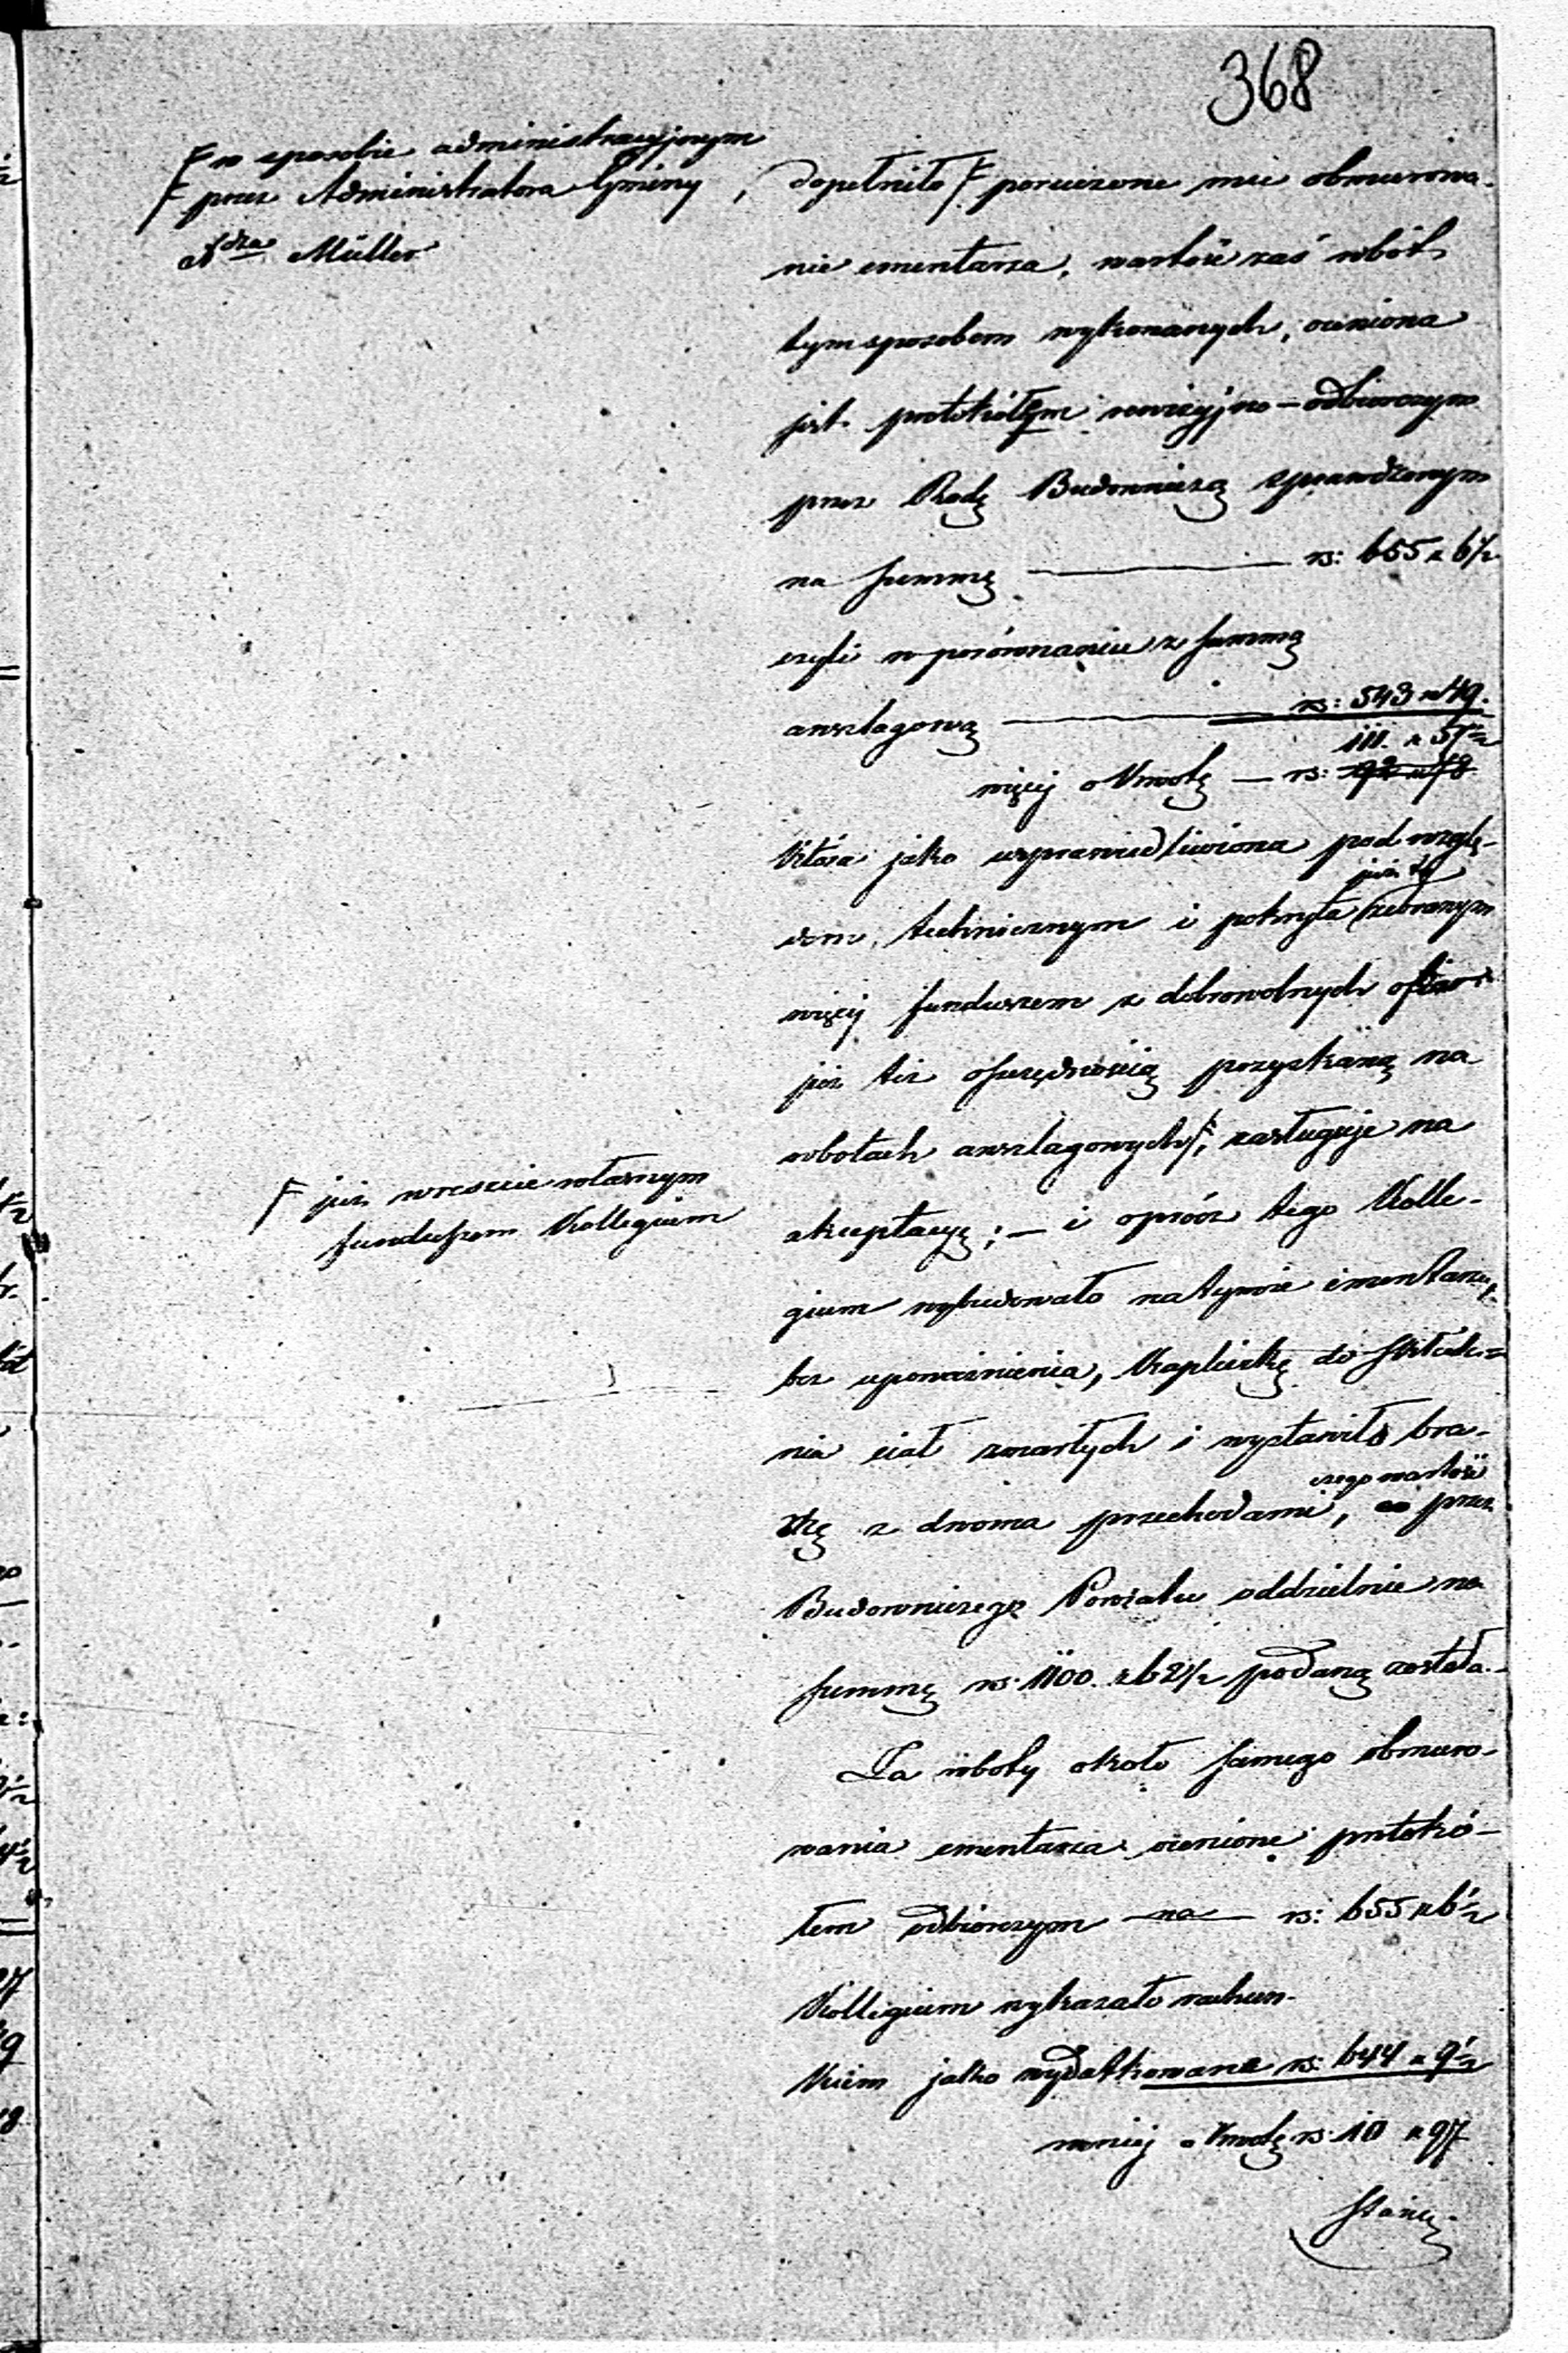 368
F w sposobie administracyjnym
F przez Administratora Gminy,
Müller
dopełniło F poruczone mu obmurowa-
nie cmentarza, wartość zaś robót
tym sposobem wykonanych, oceniona
jest protokółem rewizyjno-odbiorczym
przez Radę Budowniczą sprawdzonym
na summę — rs: 655 k 6½
czyli w porównaniu z summą
anszlagową — rs: 543 k 49.
111. k 57½
więcej o kwotę — rs: 92 k 78
która jako usprawiedliwiona pod wzglę-
już to
dem technicznym i pokryta zebranym
więcej funduszem z dobrowolnych ofiar
już też oszczędnością pozyskaną na
robotach anszlagowych F, zasługuje na
F już wreszcie własnym
funduszem Kollegium
akceptacyę; — i oprócz tego Kolle-
gium wybudowało na tymże cmentarzu,
bez upoważnienia, Kapliczkę do składa-
nia ciał zmarłych i wystawiło bra-
czego wartość
mę z dwoma przechodami, przez
Budowniczego Powiatu oddzielnie na
summę rs. 1100. k 62½ podaną została.
Za roboty około samego obmuro-
wania cmentarza ocenione protokó-
łem odbiorczym — na — rs: 655 k 6½
Kollegium wykazało rachun-
kiem jako wydatkowane rs: 644 k 9½
mniej o kwotę rs. 10 k 97